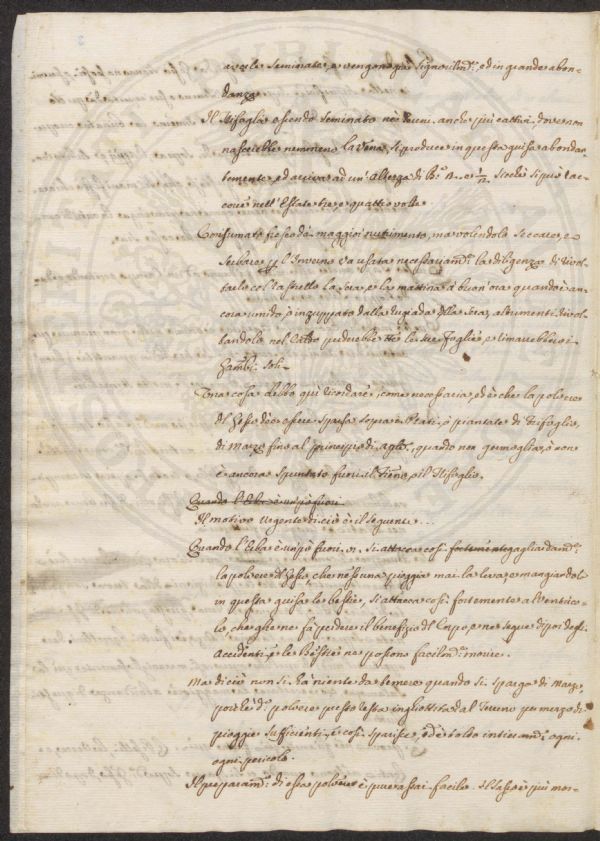 averle seminate, e vengono già signorilm.e, ed in grande abon-
danza.
Il Trifoglio essendo seminato ne' terreni anche più cattivi, dove non
nascerebbe nemmeno la Vena, si produce in questa guisa abondan
temente, ed arriva ad un' Altezza di B.a e 1/2. Sicchè si può rac-
corre nell'Estate tre, e quattro volte.
Consumato fresco dà maggior nutrimento, ma volendolo seccare, e
serbare p l'Inverno va usata necessariam.te la diligenza di rivol-
tarlo col rastrello la sera, e la mattina à buon'ora quando è an-
cora umido, ò inzuppato dalla rugiada della sera, altrimenti rivol-
tandolo nel Caldo perderebbe tte le sue foglie, e rimarrebbero i
Gambi soli.
Una cosa debbo quì ricordare, come necessaria, ed è che la polvere
di Gesso dèe essere sparsa sopra i Prati, ò piantate di Trifoglio,
di Marzo fino al principio di Aple, quando non germoglia, ò non
è ancora spuntato fuori il Fieno, ò il Trifoglio.
Quando l'Erba è un pò fuori
Il motivo urgente di ciò è il seguente...
Quando l'Erba è un pò fuori, si attacca così fortemente gagliardam.te
la polvere di Gesso, che nessuna pioggia mai la leva, e mangiandola
in questa guisa le bestie, si attacca così fortemente al Ventrico-
lo, che gli ne fà perdere il benefizio del Corpo, e ne segue poi degli
Accidenti, e le Bestie ne possono facilm.te morire.
Ma di ciò non si hà niente da temere quando si sparga di Marzo,
poichè d.a polvere presto resta inghiottita dal Terreno per mezzo di
pioggie sufficienti, e così sparisce, ed è tolto intieram.te ogni
ogni pericolo.
Il preparam.to di essa polvere è pure assai facile. Il Sasso è più mor-